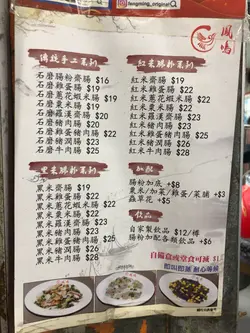 fengming_original
鳳鳴
傳統手工系列
石磨腸粉齋腸 $16
石磨雞蛋腸 $19
石磨蔥花蝦米腸 $19
石磨粟米腸 $19
石磨羅漢齋腸 $20
石磨豬肉腸 $20
石磨雞蛋豬肉腸 $25
石磨豬潤腸
石磨牛肉腸 $25
紅米腸粉系列
紅米齋腸 $19
紅米雞蛋腸 $22
紅米蔥花蝦米腸 $22
紅米粟米腸 $22
紅米羅漢齋腸 $23
紅米豬肉腸 $23
紅米雞蛋豬肉腸 $28
紅米豬潤腸
紅米牛肉腸 $28
黑米腸粉系列
黑米齋腸 $19
黑米雞蛋腸 $22
黑米蔥花蝦米腸 $22
黑米粟米腸 $22
黑米羅漢齋腸 $23
黑米豬肉腸 $23
黑米雞蛋豬肉腸 $28
黑米豬潤腸
黑米牛肉腸 $28
加配
腸粉加底 +$8
粟米/加菜/雞蛋/菜脯 +$3
蟲草花 +$5
飲品
自家製飲品 $12/樽
腸粉加配各類飲品 -$6
自備食盒堂食可減 $1
即叫即蒸 耐心等候